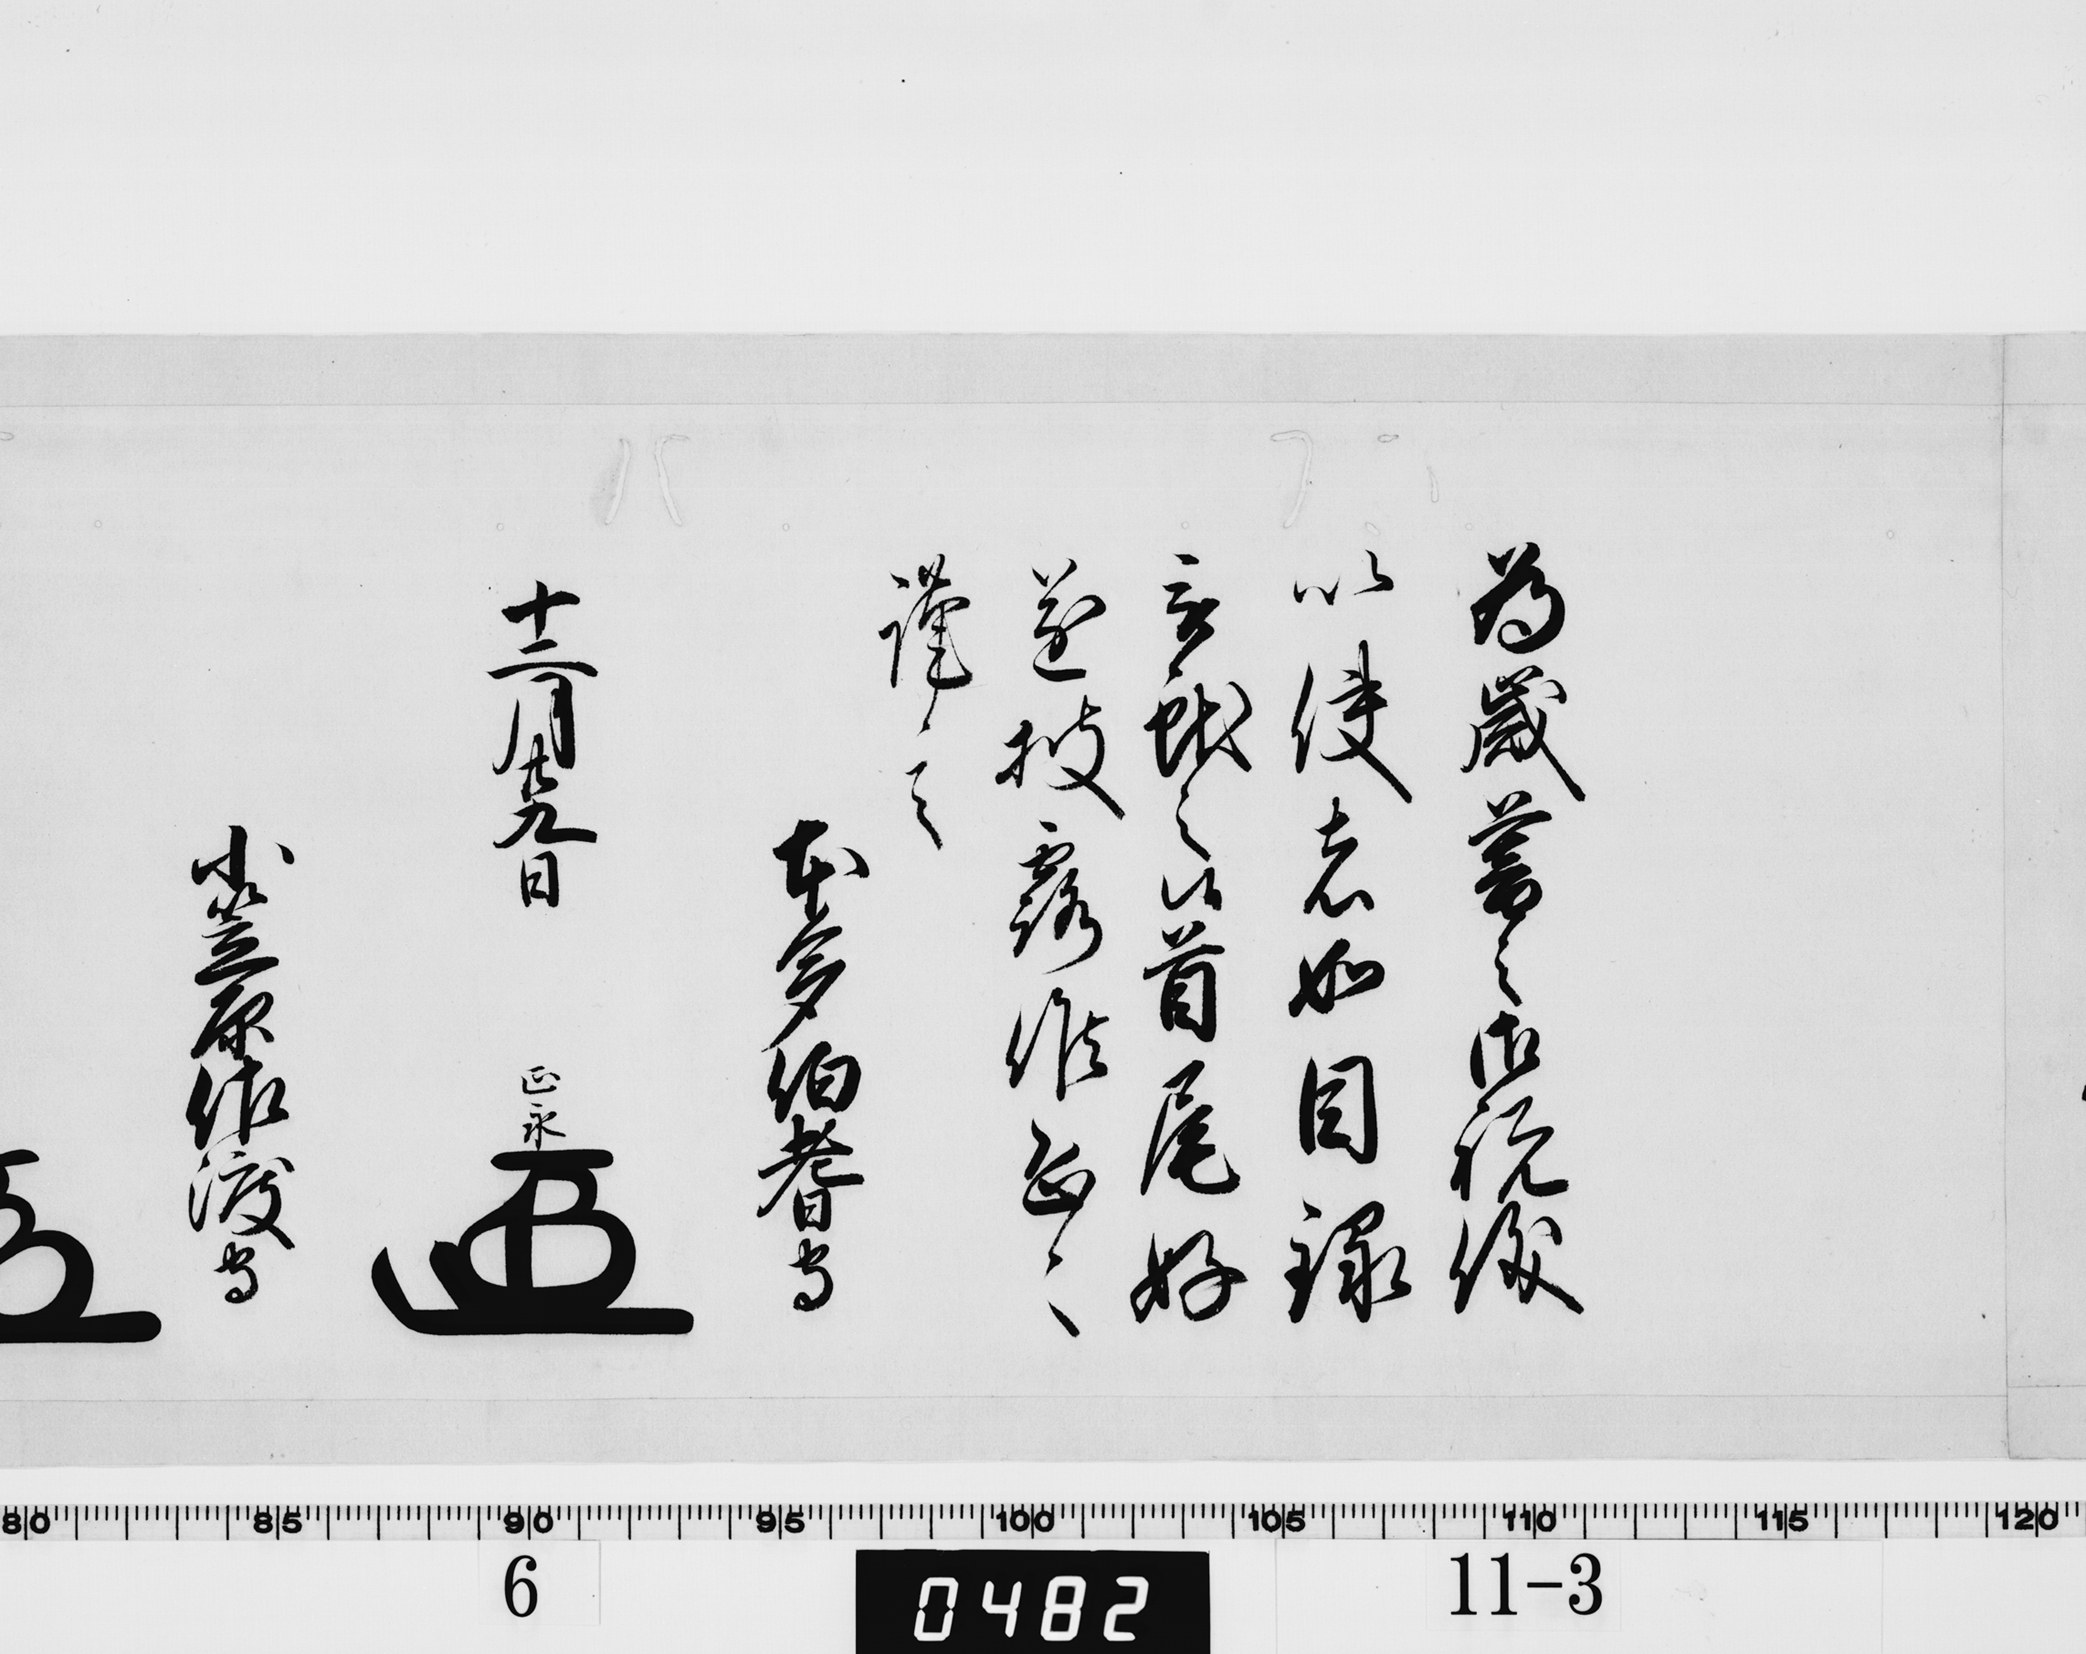 為歳暮之御祝儀
以使者如目録
被献之候首尾好
遂披露候恐々
謹言
本多伯耆守
十二月廿九日
正永
小笠原佐渡守
80 85 90 95 100 105 110 115 120
6 0482 11-3